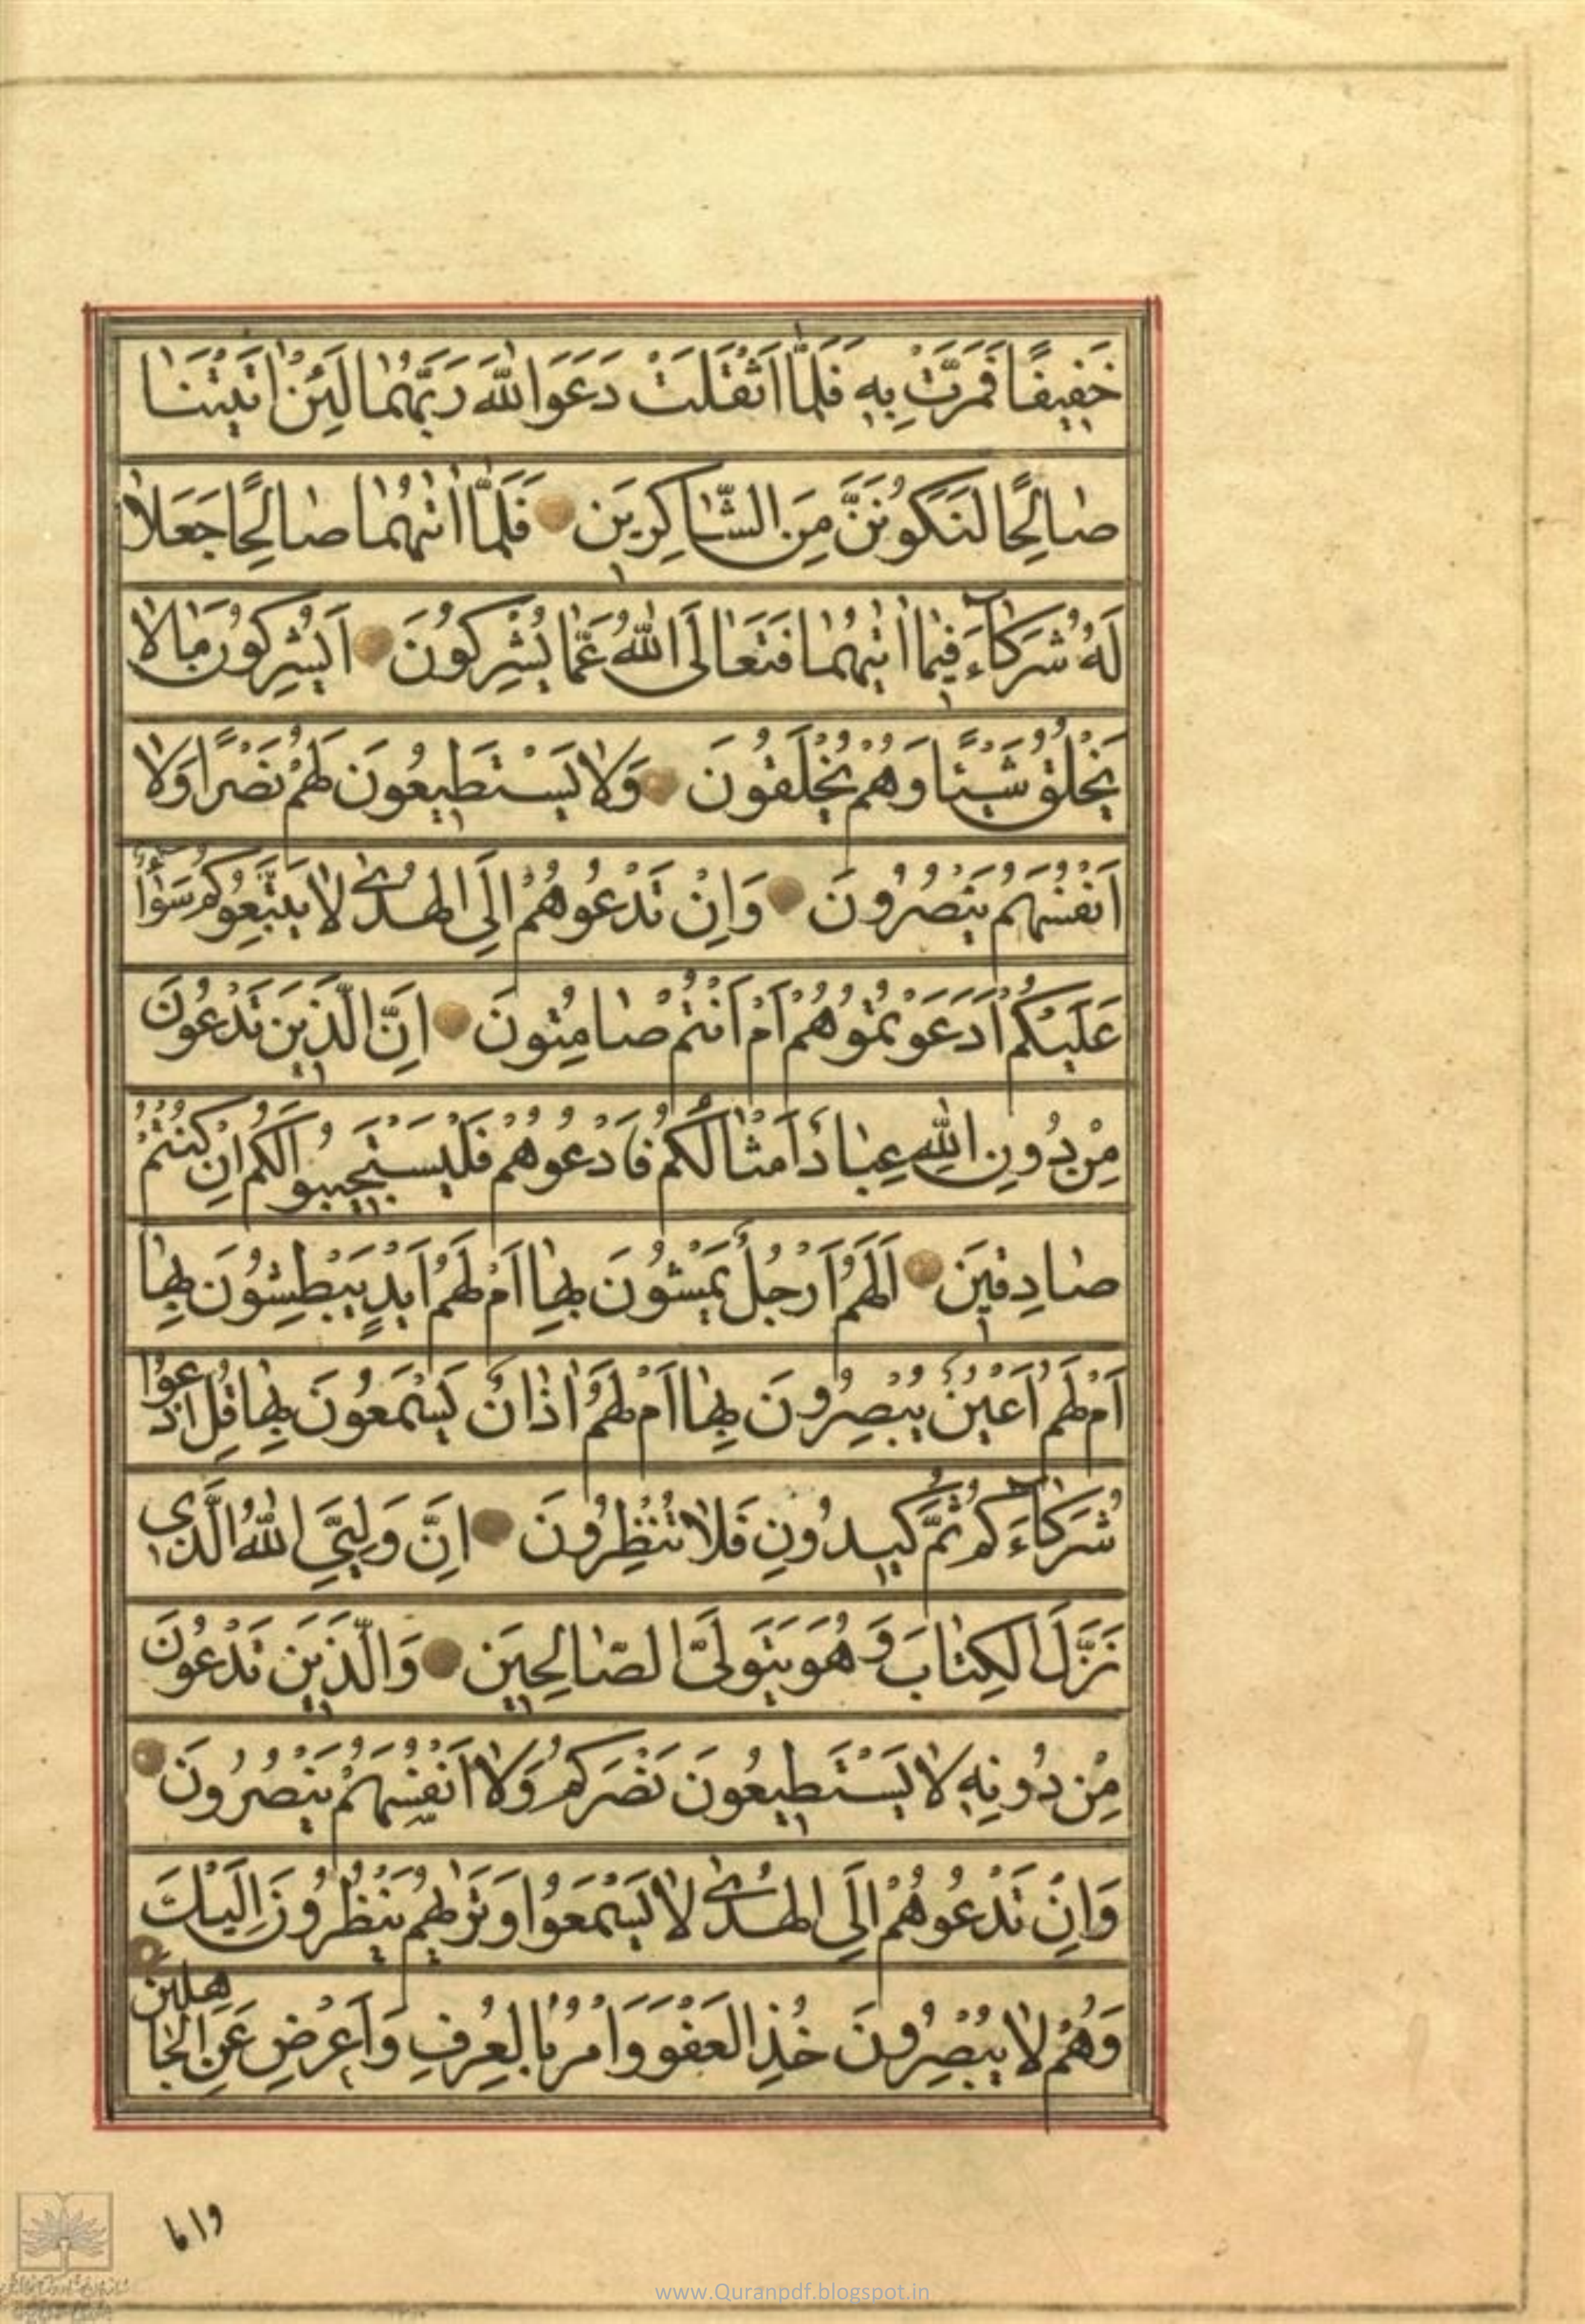 خَفِيفًا فَمَرَّتْ بِهِ فَلَمَّا اَثْقَلَتْ دَعَوَا اللّٰهَ رَبَّهُمَا لَئِنْ اٰتَيْتَنَا
صَالِحًا لَنَكُونَنَّ مِنَ الشَّاكِرِينَ فَلَمَّا اٰتٰيهُمَا صَالِحًا جَعَلَا
لَهُ شُرَكَاءَ فِيمَا اٰتٰيهُمَا فَتَعَالَى اللّٰهُ عَمَّا يُشْرِكُونَ اَيُشْرِكُونَ مَا لَا
يَخْلُقُ شَيْئًا وَهُمْ يُخْلَقُونَ وَلَا يَسْتَطِيعُونَ لَهُمْ نَصْرًا وَلَا
اَنْفُسَهُمْ يَنْصُرُونَ وَاِنْ تَدْعُوهُمْ اِلَى الْهُدٰى لَا يَتَّبِعُوكُمْ سَوَاءٌ
عَلَيْكُمْ اَدَعَوْتُمُوهُمْ اَمْ اَنْتُمْ صَامِتُونَ اِنَّ الَّذِينَ تَدْعُونَ
مِنْ دُونِ اللّٰهِ عِبَادٌ اَمْثَالُكُمْ فَادْعُوهُمْ فَلْيَسْتَجِيبُوا لَكُمْ اِنْ كُنْتُمْ
صَادِقِينَ اَلَهُمْ اَرْجُلٌ يَمْشُونَ بِهَا اَمْ لَهُمْ اَيْدٍ يَبْطِشُونَ بِهَا
اَمْ لَهُمْ اَعْيُنٌ يُبْصِرُونَ بِهَا اَمْ لَهُمْ اٰذَانٌ يَسْمَعُونَ بِهَا قُلِ ادْعُوا
شُرَكَاءَكُمْ ثُمَّ كِيدُونِ فَلَا تُنْظِرُونَ اِنَّ وَلِيِّيَ اللّٰهُ الَّذِي
نَزَّلَ الْكِتَابَ وَهُوَ يَتَوَلَّى الصَّالِحِينَ وَالَّذِينَ تَدْعُونَ
مِنْ دُونِهِ لَا يَسْتَطِيعُونَ نَصْرَكُمْ وَلَا اَنْفُسَهُمْ يَنْصُرُونَ
وَاِنْ تَدْعُوهُمْ اِلَى الْهُدٰى لَا يَسْمَعُوا وَتَرٰيهُمْ يَنْظُرُونَ اِلَيْكَ
وَهُمْ لَا يُبْصِرُونَ خُذِ الْعَفْوَ وَاْمُرْ بِالْعُرْفِ وَاَعْرِضْ عَنِ الْجَاهِلِينَ
واما
www.Quranpdf.blogspot.in